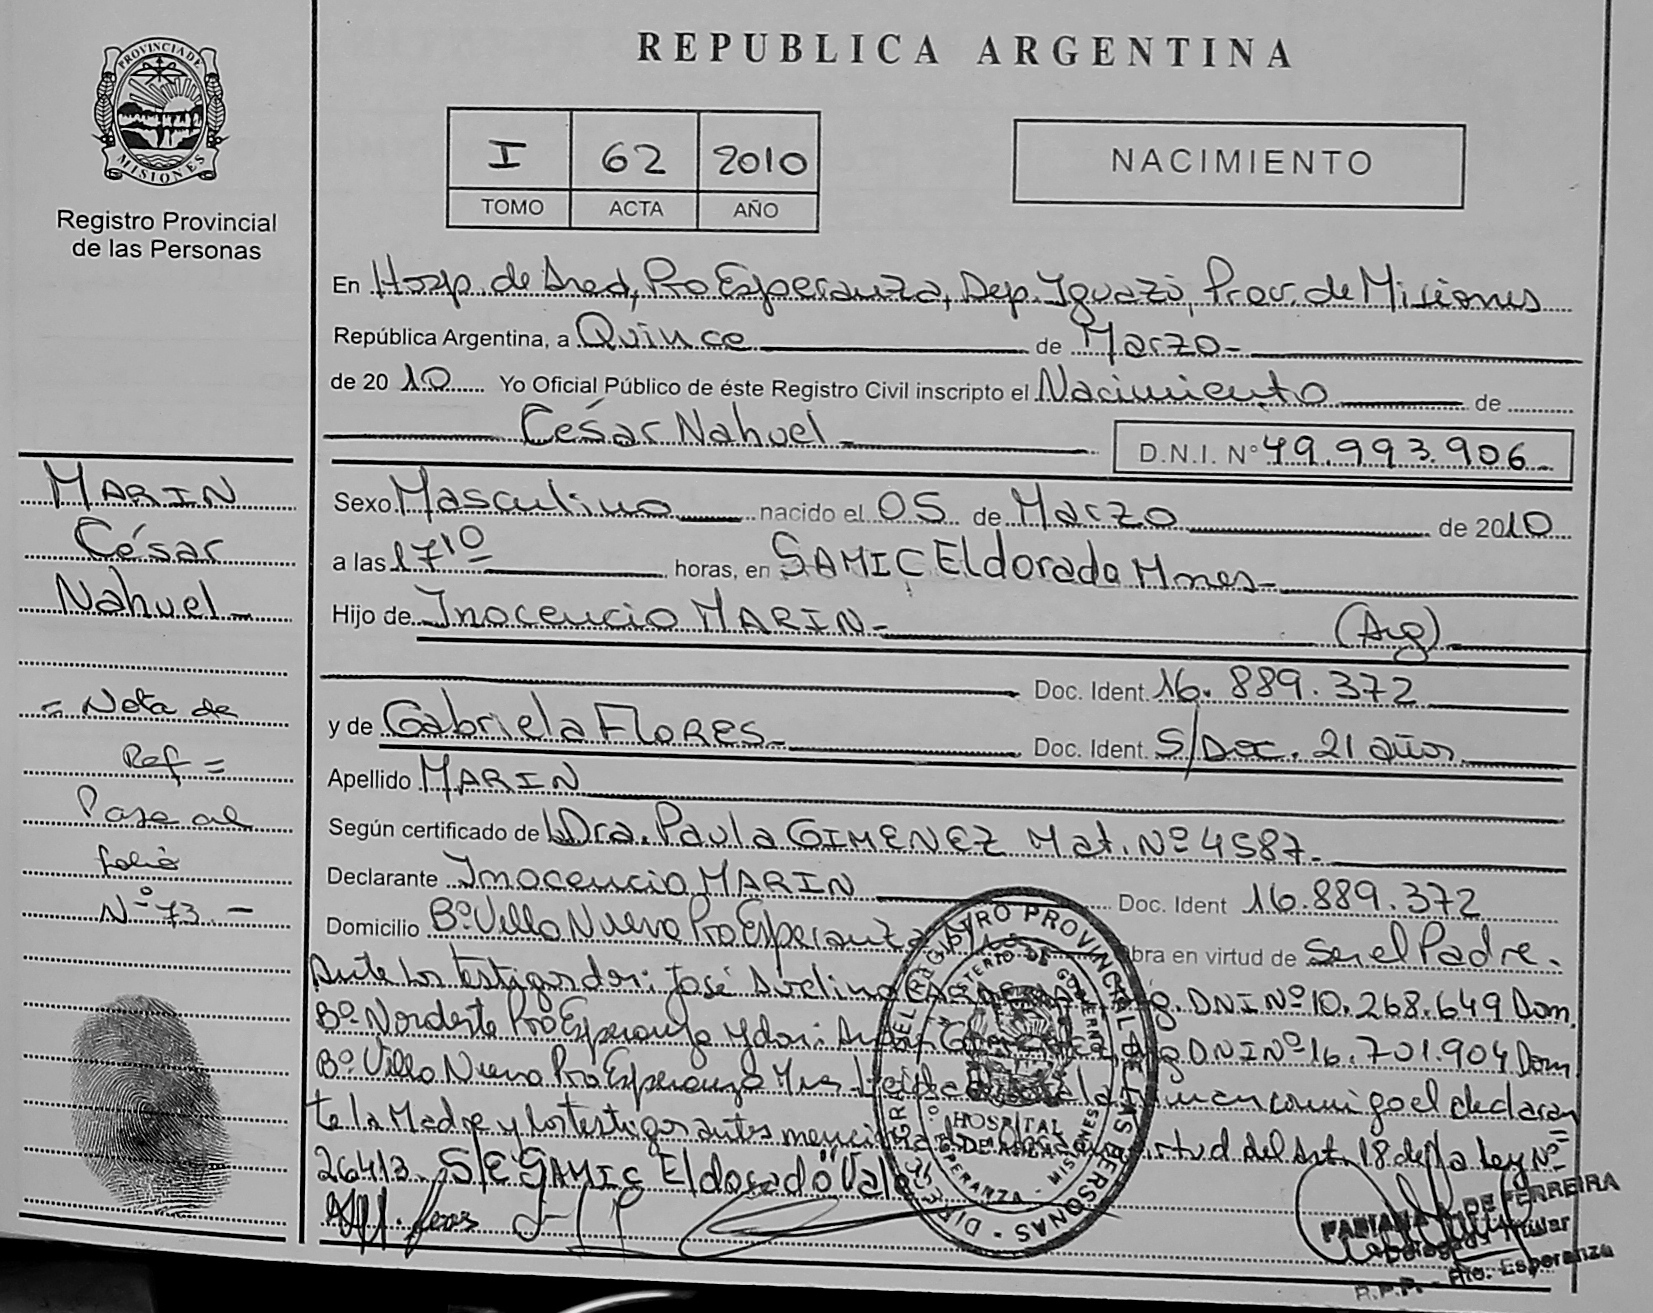 PROVINCIA DE
MISIONES
Registro Provincial
de las Personas
REPUBLICA ARGENTINA
I 62 2010
TOMO ACTA AÑO
NACIMIENTO
En Hosp. de Area, Pto Esperanza, Dep. Iguazú, Prov. de Misiones
República Argentina, a Quince de Marzo
de 2010 Yo Oficial Público de éste Registro Civil inscripto el Nacimiento de
César Nahuel
D.N.I. Nº 49.993.906
Sexo Masculino nacido el 05 de Marzo de 2010
a las 17 10 horas, en SAMIC Eldorado Mnes
Hijo de Inocencio MARIN (Arg)
Doc. Ident. 16.889.372
y de Gabriela FLORES Doc. Ident. S/Doc. 21 años
Apellido MARIN
Según certificado de Dra. Paula GIMENEZ Mat. Nº 4587
Declarante Inocencio MARIN Doc. Ident 16.889.372
Domicilio Bº Villa Nueva Pto Esperanza obra en virtud de Ser el Padre.
Ante los testigos don: José Avelino DNI Nº 10.268.649 Dom
Bº Nordeste Pto Esperanza y don: DNI Nº 16.701.904 Dom
Bº Villa Nueva Pto Esperanza Mnes Leída el acta la firman conmigo el declaran
te la Madre y los testigos antes virtud del Art. 18 de la Ley Nº
26413. S/E SAMIC Eldorado Vale
MARIN
César
Nahuel
= Nota de
Ref =
Pase al
folio
Nº 73
REGISTRO PROVINCIAL DE LAS PERSONAS
MINISTERIO DE GOBIERNO
HOSPITAL
DE AREA
ESPERANZA - MISIONES
FABIANA DE FERREIRA
Titular
R.P.P. - Pto. Esperanza